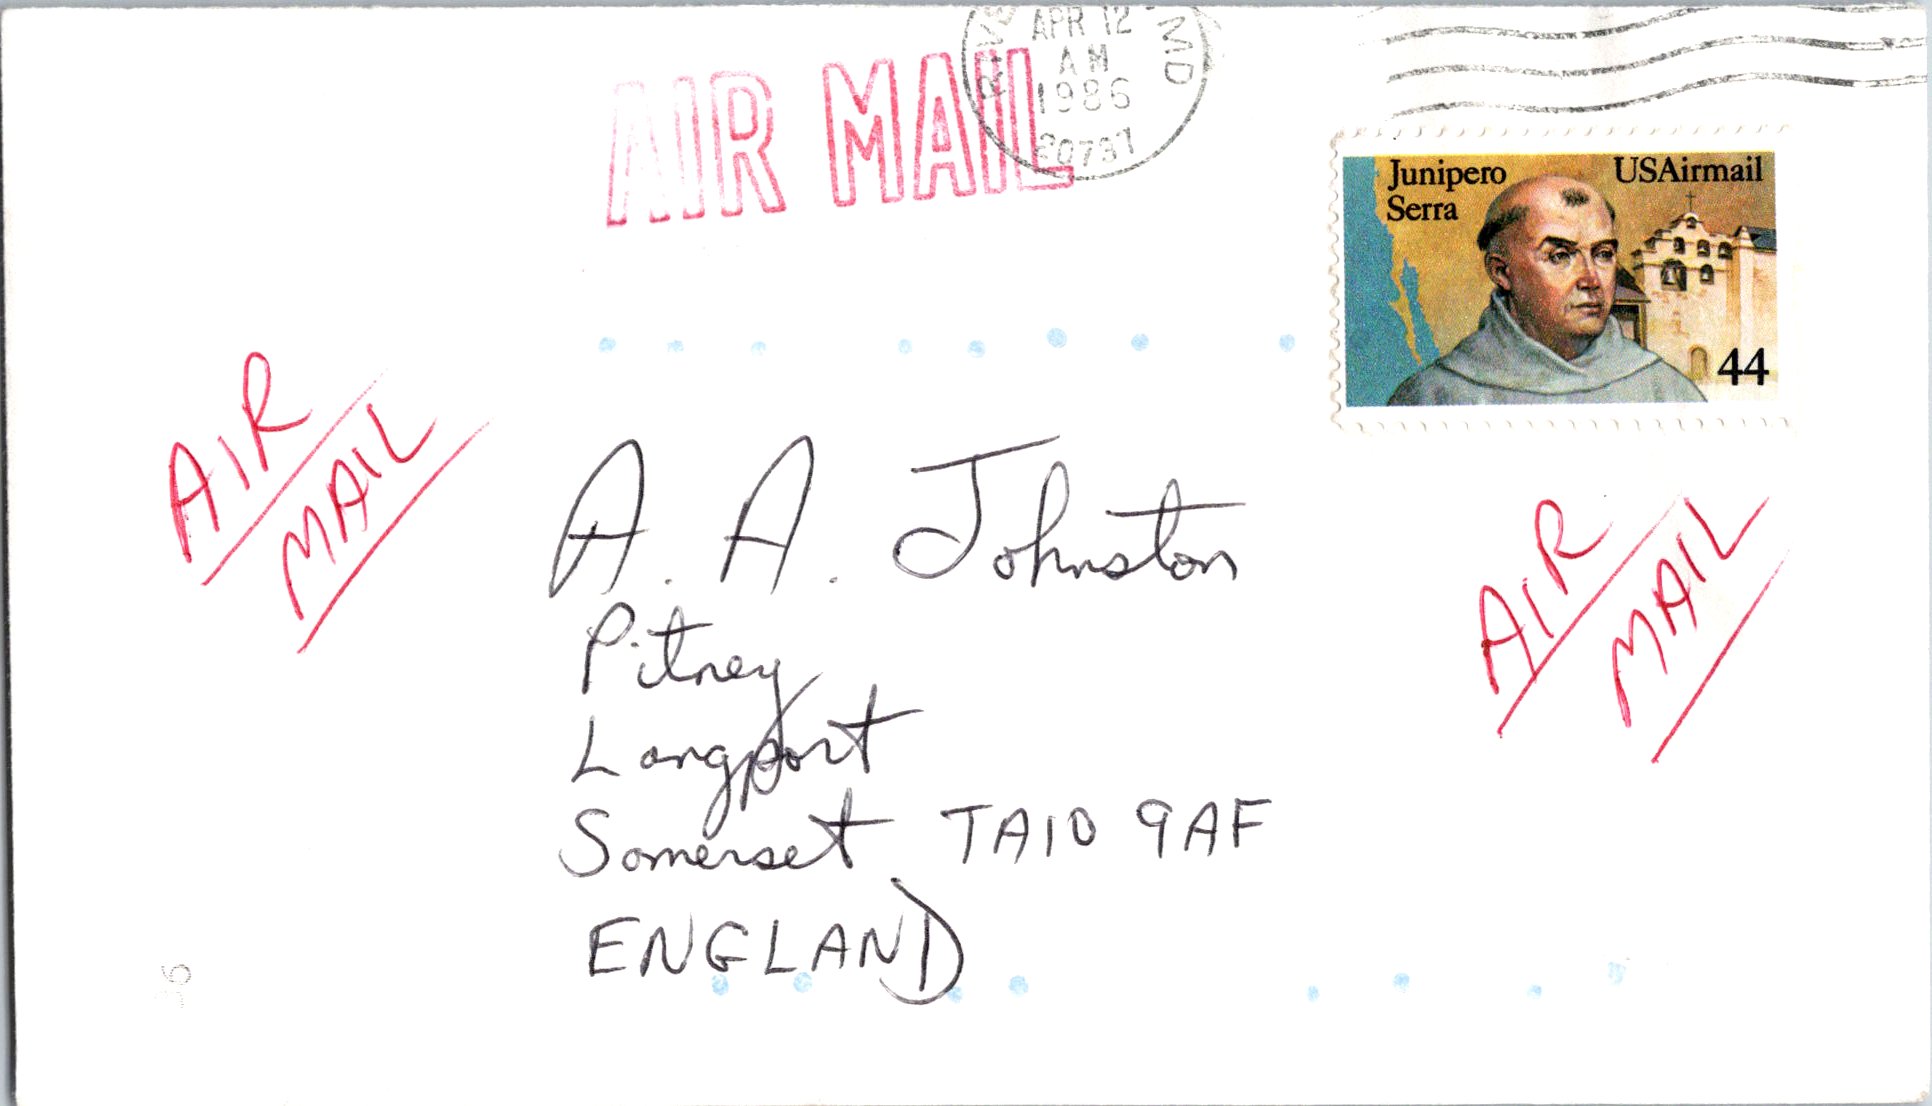 APR 12
MD
AM
1986
20737
AIR MAIL
Junipero
Serra
USAirmail
44
AIR
MAIL
A. A. Johnston
Pitney
Langport
Somerset TA10 9AF
ENGLAND
AIR
MAIL